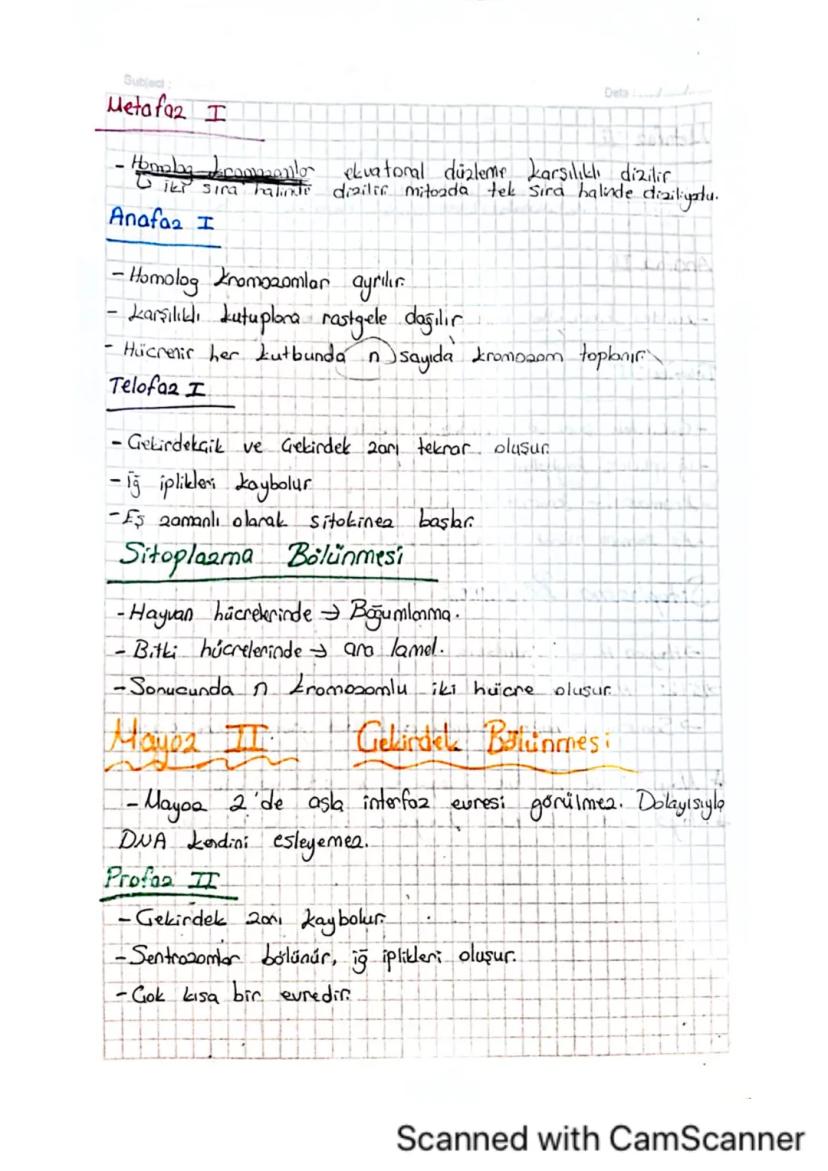 Subject :
Date : ..../..../....
Metafaz I
- Homolog kromozomlar ekvatoral düzleme karşılıklı dizilir
↳ iki sıra halinde dizilir mitozda tek sıra halinde diziliyordu.
Anafaz I
- Homolog kromozomlar ayrılır.
- Karşılıklı kutuplara rastgele dağılır
- Hücrenin her kutbunda n sayıda kromozom toplanır.
Telofaz I
- Çekirdekçik ve Çekirdek zarı tekrar oluşur.
- İğ iplikleri kaybolur
- Eş zamanlı olarak sitokinez başlar.
Sitoplazma Bölünmesi
- Hayvan hücrelerinde → Boğumlanma.
- Bitki hücrelerinde → ara lamel.
- Sonucunda n kromozomlu iki hücre oluşur
Mayoz II Çekirdek Bölünmesi
- Mayoz 2'de asla interfaz evresi görülmez. Dolayısıyla
DNA kendini eşleyemez.
Profaz II
- Çekirdek zarı kaybolur.
- Sentrozomlar bölünür, iğ iplikleri oluşur.
- Çok kısa bir evredir.
Scanned with CamScanner